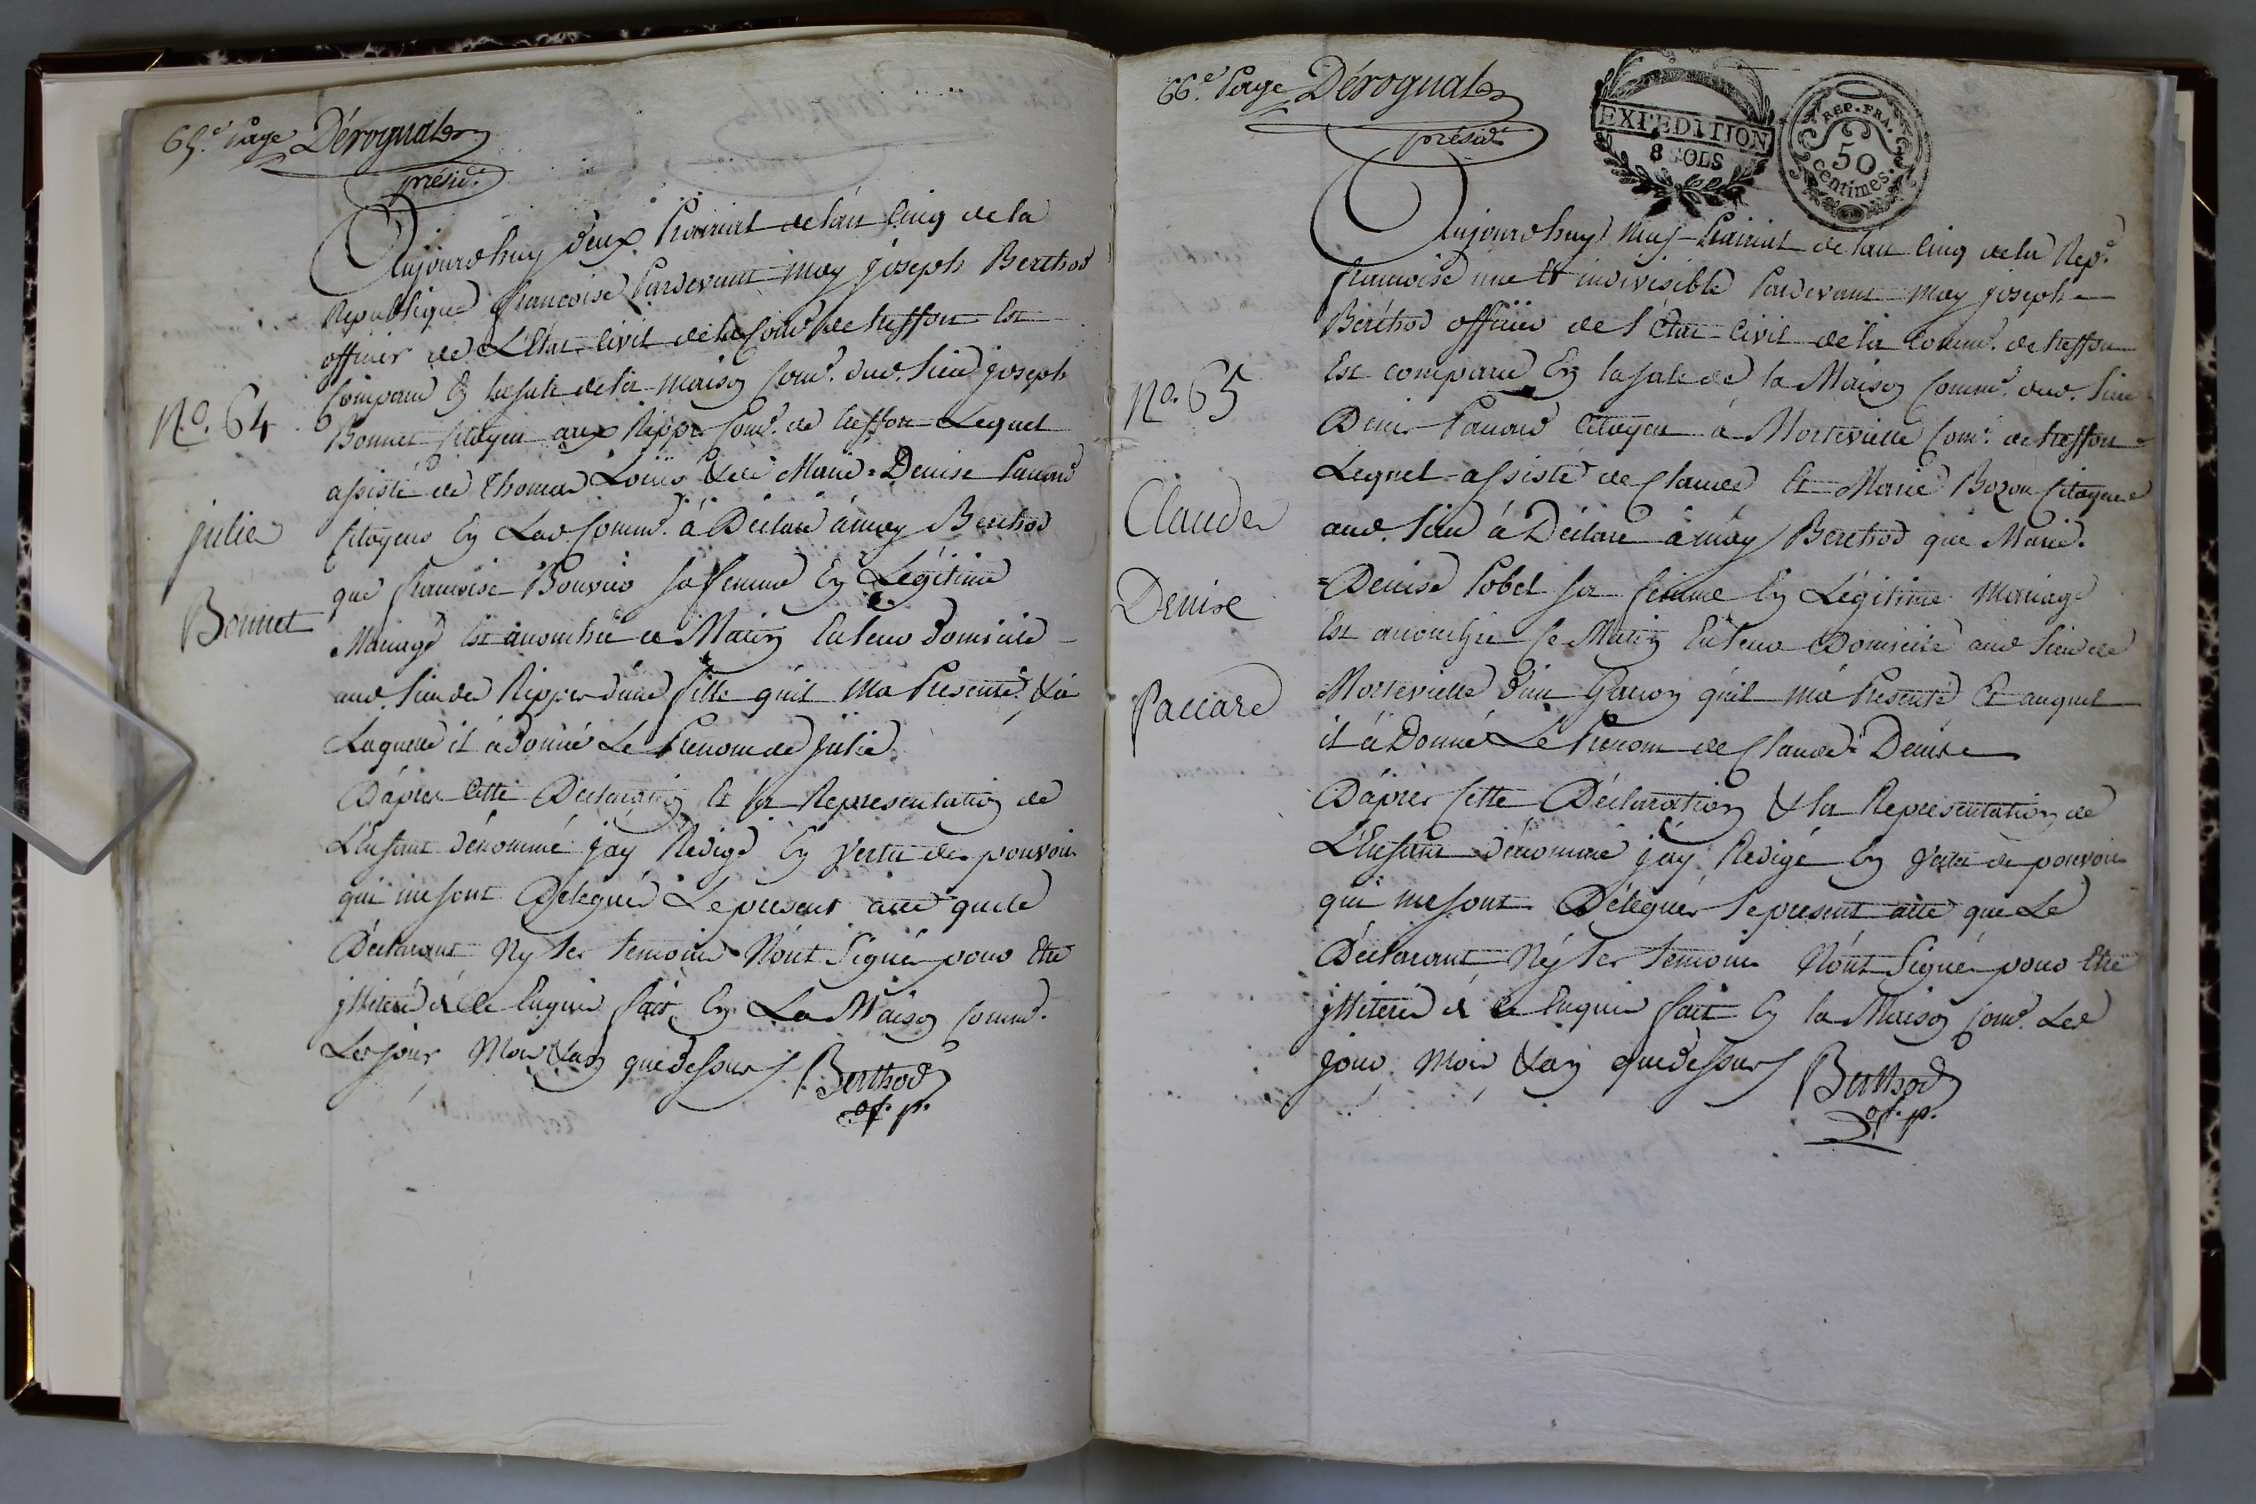 65.e Page Dérognat
présid.t
Aujourdhuy deux Prairial de l'an Cinq de la
Republique francoise Pardevant moy joseph Berthod
officier de L'Etat Civil de la Com.e de treffort Est
Comparu En la sale de la maison Com.e dud. Lieu joseph
N.o 64
Bonnet Citoyen aux Rippes Com.e de treffort Lequel
assisté de thomas Louis & de Marie=Denise Paccard
julie
Citoyens En Lad. Comm.e à Déclaré à moy Berthod
que francoise Bouvier sa femme En Légitime
Bonnet
Mariage Est accouchée ce Matin En leur domicile
aud. Lieu de Rippes d'une fille quil Ma Presenté & à
Laquelle il à donné Le Prenom de julie
Dápres Cette Declaration Et la Representation de
L'Enfant dénommé jay Redigé En vertu des pouvoirs
qui me sont Délegués Le present acte que le
Déclarant Ny les temoins Nónt Signés pour Etre
jllitérés de ce Enquis fait En La Maison Comm.e
Les jour Mois & an que dessus Berthod
of. p.
66.e Page Dérognat
présid.t
EXPEDITION
8 SOLS
REP. FRA.
50
centimes.
Aujourdhuy Neuf Prairial de l'an Cinq de la Rep.e
francoise une Et indivisible Pardevant moy joseph
Berthod officier de l'Etat Civil de la Comm.e de treffort
Est comparu En la sale de la Maison Comm.e dud. Lieu
N.o 65
Denis Paccard Citoyen à Mortevielle Com.e de treffort
Lequel assisté de Claude Et Marie Bozon Citoyens
Claude
aud. Lieu à Déclaré à moy Berthod que Marie
=Denise Pobel sa femme En Légitime Mariage
Denise
Est accouchée Ce Matin En leur Domicile aud Lieu de
Paccard
Mortevielle d'un Garcon quil má Presenté Et auquel
il à Donné Le Prenom de Claude Denise
Dápres Cette Déclaration & la Representation de
L'Enfant dénommé jáy Redigé En vertu de pouvoirs
qui me sont Délégués le present acte que Le
Déclarant Ny les temoins Nónt Signés pour Etre
jllitérés de ce Enquis fait En la Maison Com.e Les
jour, Mois & an que dessus Berthod
of. p.